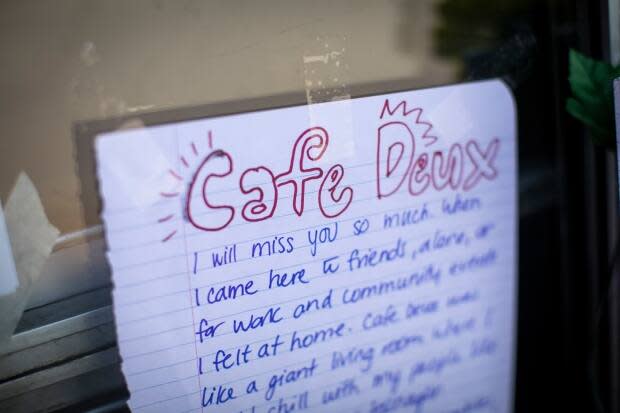 Cafe Deux
I will miss you so much. When
I came here w friends, alone, or
for work and community events
I felt at home. Cafe Deux was
like a giant living room where I
chill with my people like
teenager